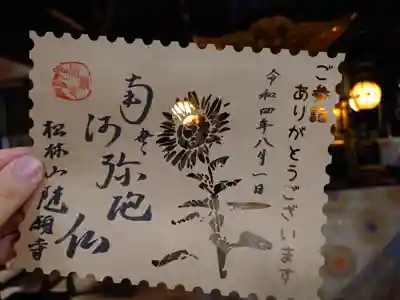 ご参詣
ありがとうございます
令和四年八月一日
南無
阿弥陀
仏
松林山随願寺